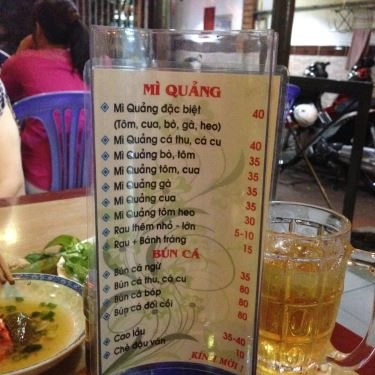 MÌ QUẢNG
Mì Quảng đặc biệt 40
(Tôm, cua, bò, gà, heo)
Mì Quảng cá thu, cá cu 40
Mì Quảng bò, tôm 35
Mì Quảng tôm, cua 35
Mì Quảng gà 35
Mì Quảng cua 35
Mì Quảng tôm heo 30
Rau thêm nhỏ - lớn 5-10
Rau + Bánh tráng 15
BÚN CÁ
Bún cá ngừ 35
Bún cá thu, cá cu 80
Bún cá bóp 80
Búp cá đối cồi 80
Cao lầu 35-40
Chè đậu ván 10
KÍNH MỜI !